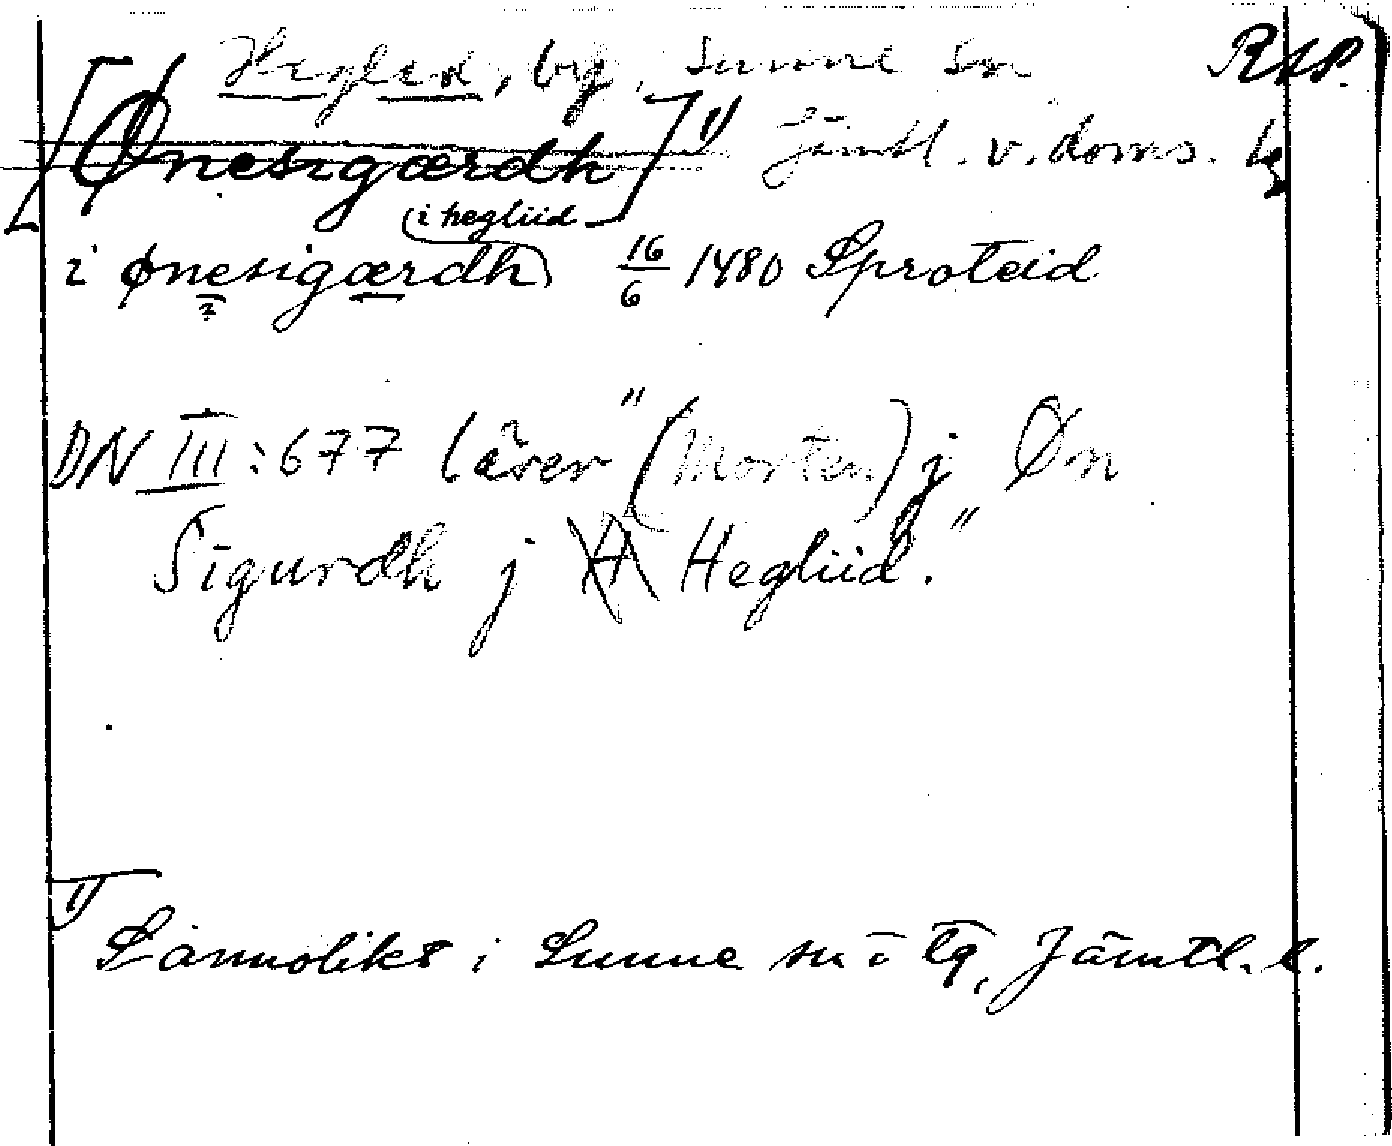 Hegled, by, Sunne sn RAP.
[Ønesigærdh] 1) Jämtl. v. doms. tg
i hegliid
i ønesigærdh 16/6 1480 Sproteid
DN III:677 läser "(Morten) j Øn
Sigurdh j H Hegliid."
1) Sannolikt i Sunne sn o tg, Jämtl. l.